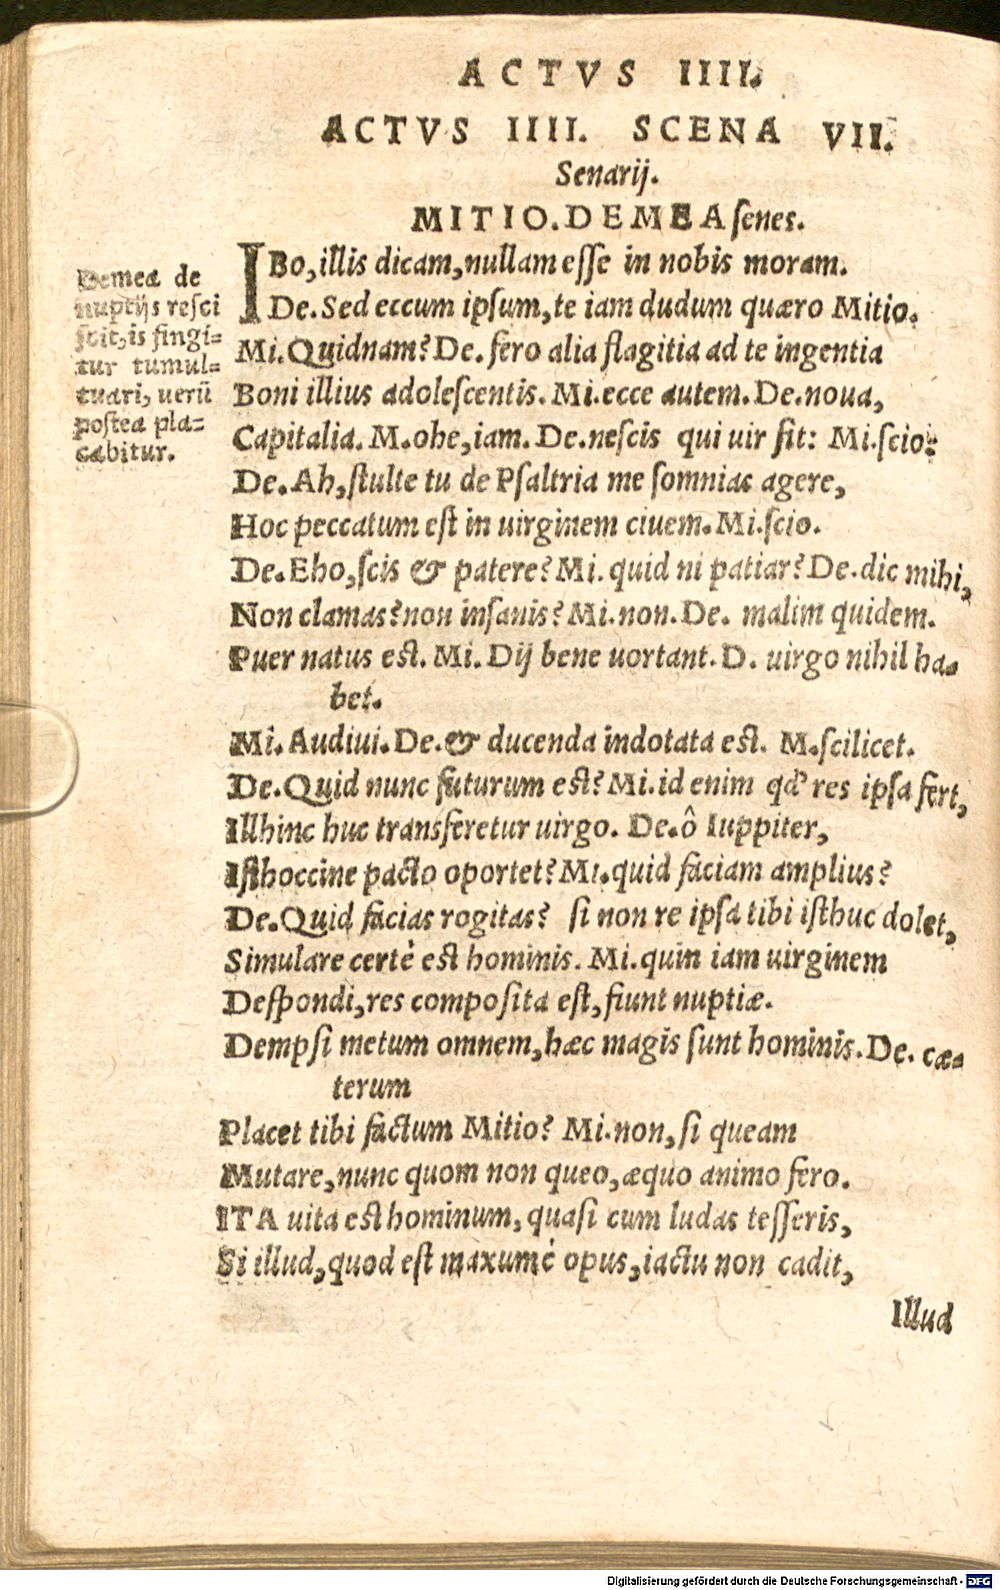 ACTVS IIII.
ACTVS IIII. SCENA VII.
Senarij.
MITIO. DEMEA senes.
IBo, illis dicam, nullam esse in nobis moram.
De. Sed eccum ipsum, te iam dudum quæro Mitio.
Mi. Quidnam? De. fero alia flagitia ad te ingentia
Boni illius adolescentis. Mi. ecce autem. De. noua,
Capitalia. M. ohe, iam. De. nescis qui uir sit: Mi. scio:
De. Ah, stulte tu de Psaltria me somnias agere,
Hoc peccatum est in uirginem ciuem. Mi. scio.
De. Eho, scis & patere? Mi. quid ni patiar? De. dic mihi,
Non clamas? non insanis? Mi. non. De. malim quidem.
Puer natus est. Mi. Dij bene uortant. D. uirgo nihil ha-
bet.
Mi. Audiui. De. & ducenda indotata est. M. scilicet.
De. Quid nunc futurum est? Mi. id enim qd' res ipsa fert,
Illhinc huc transferetur uirgo. De. ô Iuppiter,
Isthoccine pacto oportet? Mi. quid faciam amplius?
De. Quid facias rogitas? si non re ipsa tibi isthuc dolet,
Simulare certè est hominis. Mi. quin iam uirginem
Despondi, res composita est, fiunt nuptiæ.
Dempsi metum omnem, hæc magis sunt hominis. De. cæ-
terum
Placet tibi factum Mitio? Mi. non, si queam
Mutare, nunc quom non queo, æquo animo fero.
ITA uita est hominum, quasi cum ludas tesseris,
Si illud, quod est maxumè opus, iactu non cadit,
Illud
Demea de
nuptijs resci
scit, is fingi-
tur tumul-
tuari, uerũ
postea pla-
cabitur.
Digitalisierung gefördert durch die Deutsche Forschungsgemeinschaft - DFG